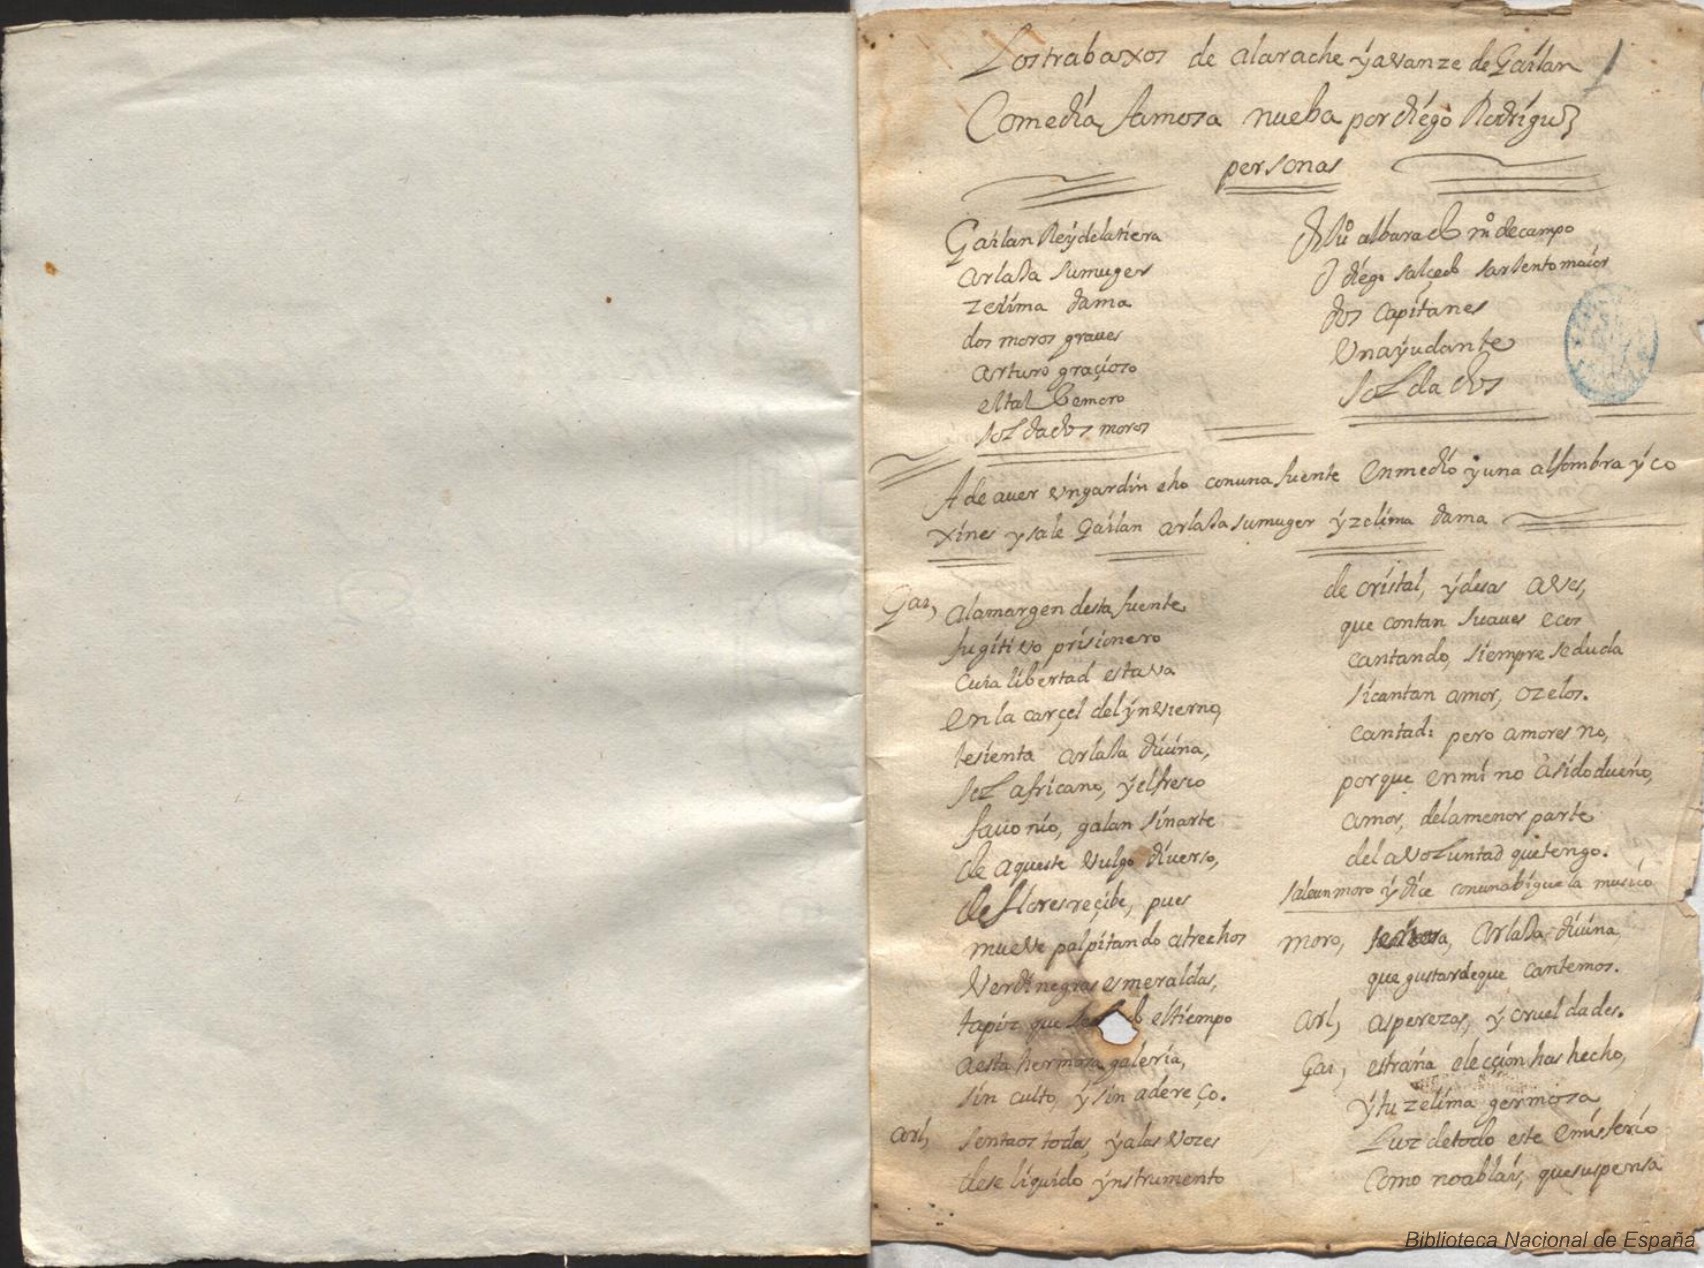 Los trabaxos de alarache y avanze de Gailan
1
Comedia famosa nueba por diego Rodrigu
personas
Gailan Rey de la tiera
arlaxa su muger
zelima dama
dos moros graues
arturo graçioso
moro
soldados moros
albarado mº de campo
diego salçedo sarxento maior
dos capitanes
Un ayudante
soldados
A de auer un gardin eho con una fuente en medio y una alfombra y co
xines y sale Gailan arlaxa su muger y zelima dama
Gai, a la margen desta fuente
fugitivo prisionero
cuia libertad estava
en la carçel del ynvierno,
te sienta arlaxa diuina,
sol africano, y el fresco
fauonio, galan sin arte
de aqueste vulgo diverso,
de flores reçibe, pues
mueve palpitando a trechos
verdinegras esmeraldas,
tapiz que el tiempo
a esta hermosa galeria,
sin culto, y sin adereço.
arl, sentaos todos, y a las vozes
dese liquido ynstrumento
de cristal, y desas aves,
que con tan suaues ecos
cantando, siempre se duda
si cantan amor, o zelos.
cantad: pero amores no,
porque en mi no à sido dueño,
amor, de la menor parte
de la voluntad que tengo.
sale un moro y dice con una biguela musico
moro, arlaxa diuina,
que gustas de que cantemos.
arl, asperezas, y crueldades.
Gai, estraña elecçion has hecho,
y tu zelima germosa
Luz de todo este emisferio
como no ablais, que suspensa
Biblioteca Nacional de España